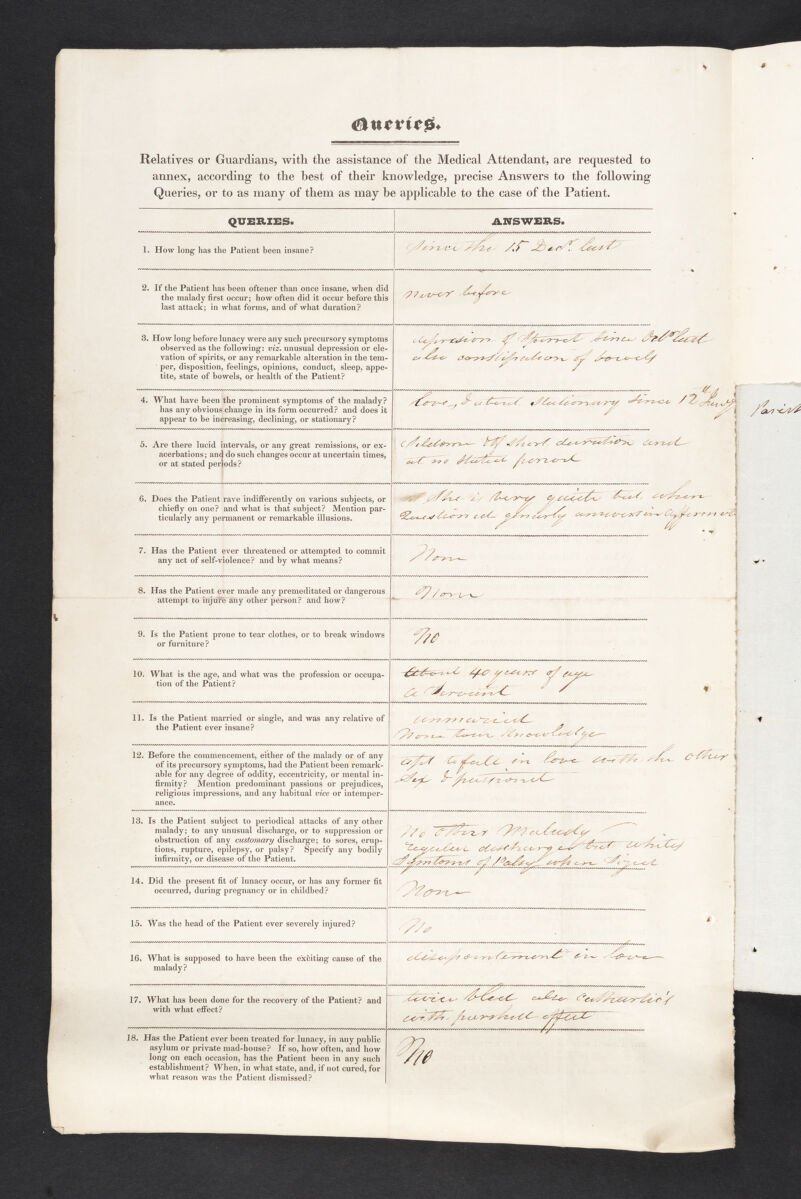 Queries.
Relatives or Guardians, with the assistance of the Medical Attendant, are requested to
annex, according to the best of their knowledge, precise Answers to the following
Queries, or to as many of them as may be applicable to the case of the Patient.
QUERIES.
ANSWERS.
1. How long has the Patient been insane?
Since the 15 Decr. last
2. If the Patient has been oftener than once insane, when did
the malady first occur; how often did it occur before this
last attack; in what forms, and of what duration?
never before
3. How long before lunacy were any such precursory symptoms
observed as the following: viz. unusual depression or ele-
vation of spirits, or any remarkable alteration in the tem-
per, disposition, feelings, opinions, conduct, sleep, appe-
tite, state of bowels, or health of the Patient?
depression of Spirret since Octr last
also constipation of bowels
4. What have been the prominent symptoms of the malady?
has any obvious change in its form occurred? and does it
appear to be increasing, declining, or stationary?
love, & about stationary since 12th
5. Are there lucid intervals, or any great remissions, or ex-
acerbations; and do such changes occur at uncertain times,
or at stated periods?
Seldom & of short duration and
at no stated period
6. Does the Patient rave indifferently on various subjects, or
chiefly on one? and what is that subject? Mention par-
ticularly any permanent or remarkable illusions.
She is very quiete but when
Questioned
7. Has the Patient ever threatened or attempted to commit
any act of self-violence? and by what means?
None
8. Has the Patient ever made any premeditated or dangerous
attempt to injure any other person? and how?
None
9. Is the Patient prone to tear clothes, or to break windows
or furniture?
No
10. What is the age, and what was the profession or occupa-
tion of the Patient?
About 40 years of age
a Servant
11. Is the Patient married or single, and was any relative of
the Patient ever insane?
unmaried
None to our knowledge
12. Before the commencement, either of the malady or of any
of its precursory symptoms, had the Patient been remark-
able for any degree of oddity, eccentricity, or mental in-
firmity? Mention predominant passions or prejudices,
religious impressions, and any habitual vice or intemper-
ance.
apt to fall in love with the other
Sex & passionet
13. Is the Patient subject to periodical attacks of any other
malady; to any unusual discharge, or to suppression or
obstruction of any customary discharge; to sores, erup-
tions, rupture, epilepsy, or palsy? Specify any bodily
infirmity, or disease of the Patient.
No other Malady
regular discharges but whites
Symtoms of Palsy when
14. Did the present fit of lunacy occur, or has any former fit
occurred, during pregnancy or in childbed?
None
15. Was the head of the Patient ever severely injured?
No
16. What is supposed to have been the exciting cause of the
malady?
disapointement in love
17. What has been done for the recovery of the Patient? and
with what effect?
twice bled also catharticks
with parshell effect
18. Has the Patient ever been treated for lunacy, in any public
asylum or private mad-house? If so, how often, and how
long on each occasion, has the Patient been in any such
establishment? When, in what state, and, if not cured, for
what reason was the Patient dismissed?
No